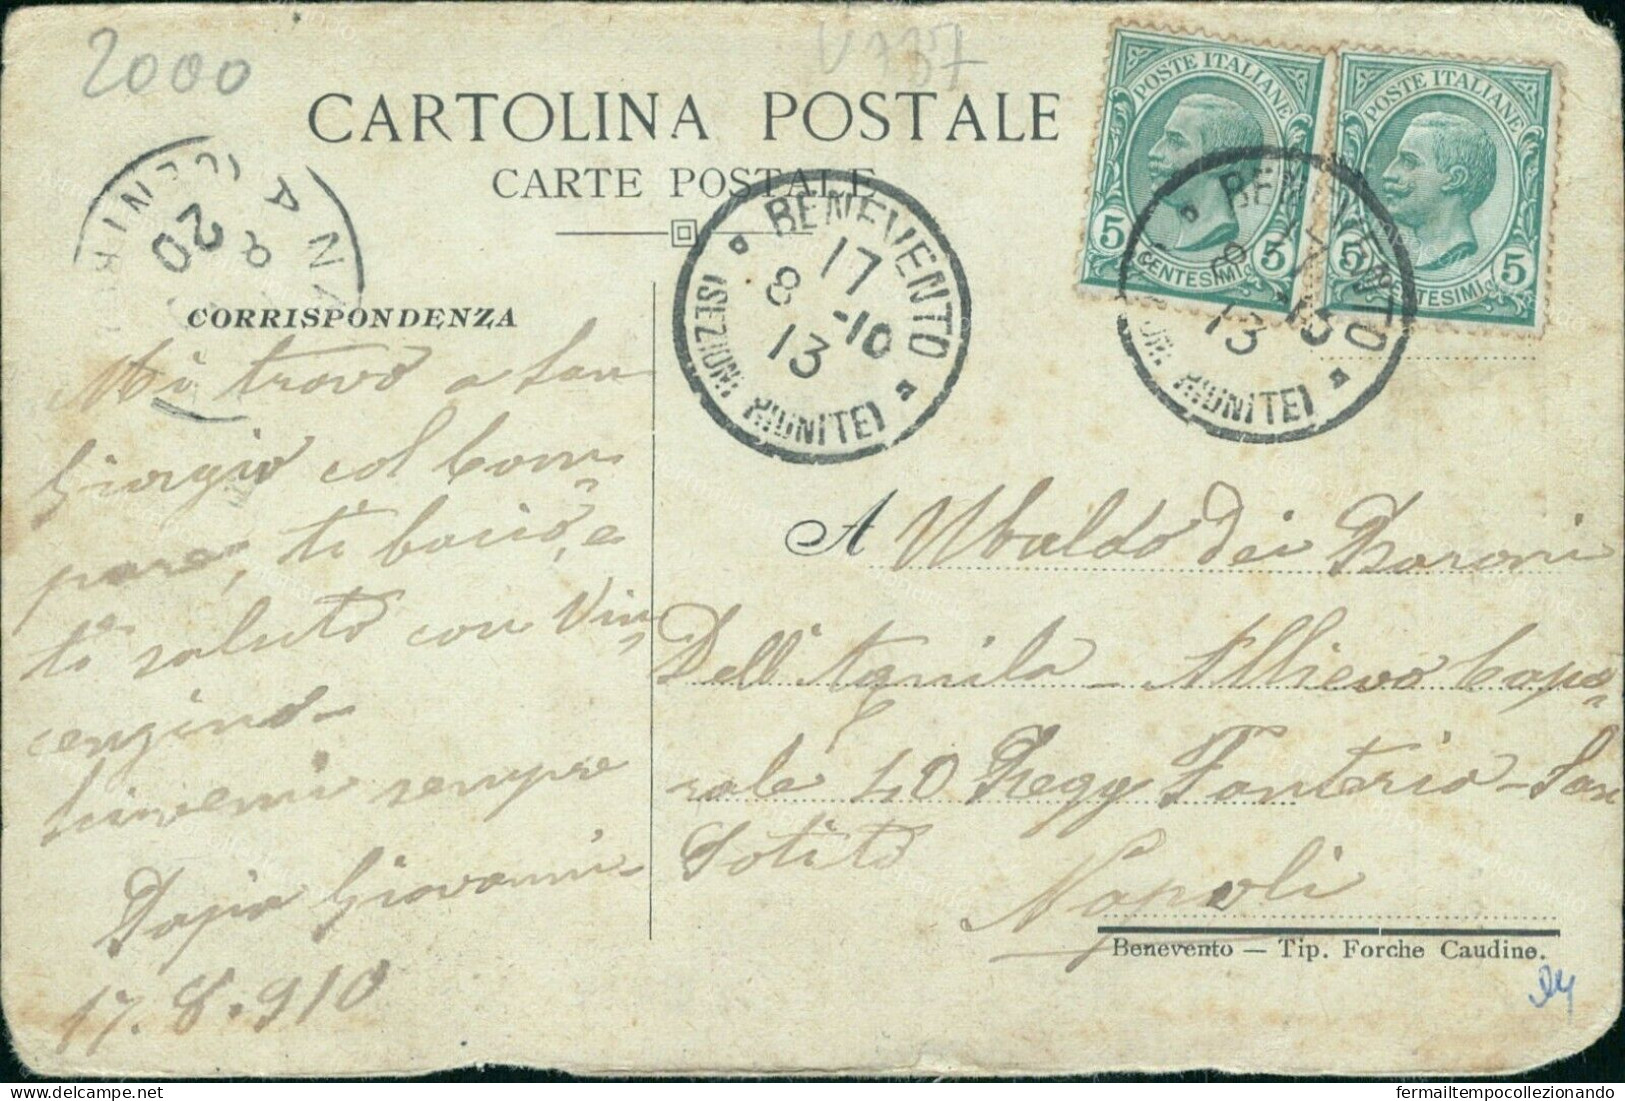 2000
V 337
CARTOLINA POSTALE
CARTE POSTALE
POSTE ITALIANE
5 CENTESIMI 5
POSTE ITALIANE
5 CENTESIMI 5
BENEVENTO
17
8 -10
13
(SEZIONI RIUNITE)
BENEVENTO
17
8 -10
13
RIUNITE)
20
8
CORRISPONDENZA
Mi trovo a San
Giorgio col Com
pare, ti bacio, e
ti saluto con Vin
cenzino-
sempre
Giovanni
17.8.910
A Ubaldo dei Baroni
Dell'Aquila - Allievo Capo
rale 40 Regg Fanteria - San
Potito
Napoli
Benevento — Tip. Forche Caudine.
delcampe.net
fermailtempocollezionando